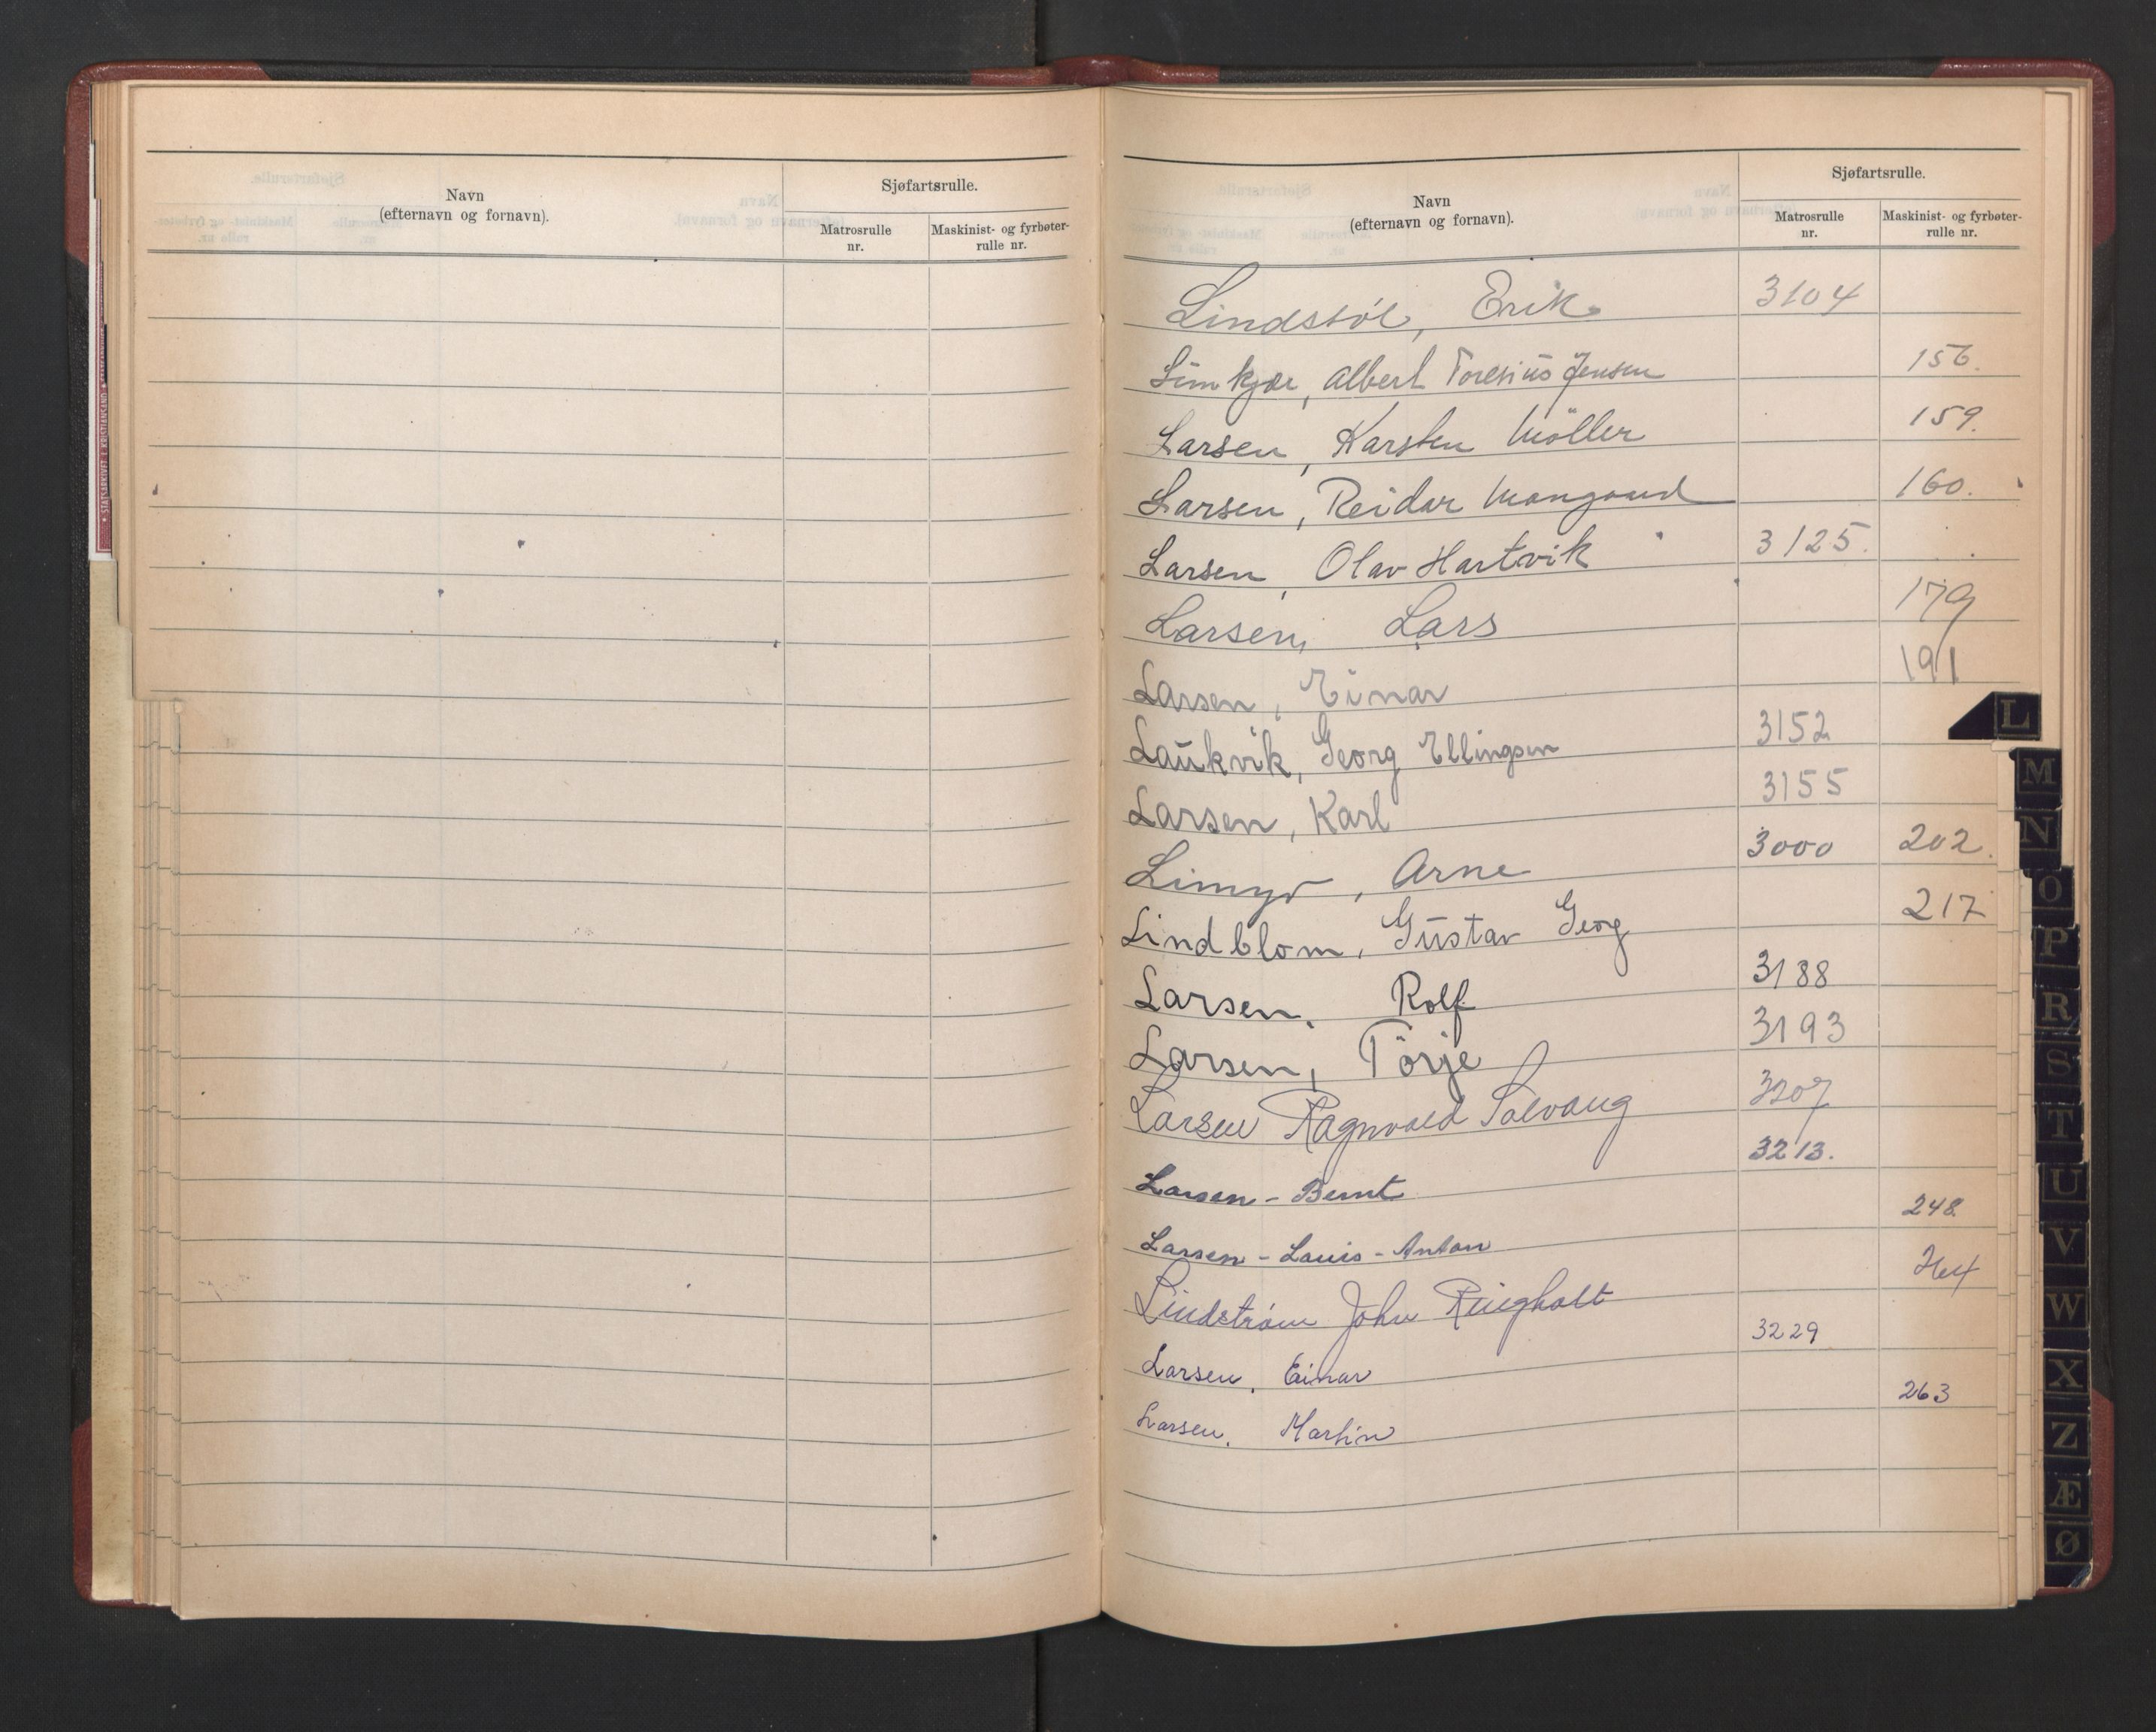 Navn
(efternavn og fornavn).
Sjøfartsrulle.
Matrosrulle
nr.
Maskinist- og fyrbøter-
rulle nr.
Navn
(efternavn og fornavn).
Sjøfartsrulle.
Matrosrulle
nr.
Maskinist- og fyrbøter-
rulle nr.
Lindstöl, Erik 3104
Limkjær, Albert Toresius Jensen 156.
Larsen, Karsten Möller 159.
Larsen, Reidar 160.
Larsen, Olav Hartvik 3125.
Larsen, Lars 179
Larsen, Einar 191
Laukvik, Georg Ellingsen 3152
Larsen, Karl 3155
Limyr, Arne 3000 202.
Lindblom, Gustav Georg 217
Larsen, Rolf 3188
Larsen, Törje 3193
Larsen Ragnvald Solvang 3207
Larsen - Bernt 3213.
Larsen - Louis - Anton 248.
Lindström John Ringholt 264
Larsen, Einar 3229
Larsen, Martin 263
L
M
N
O
P
R
S
T
U
V
W
X
Z
Æ
Ø
STATSARKIVET I KRISTIANSAND